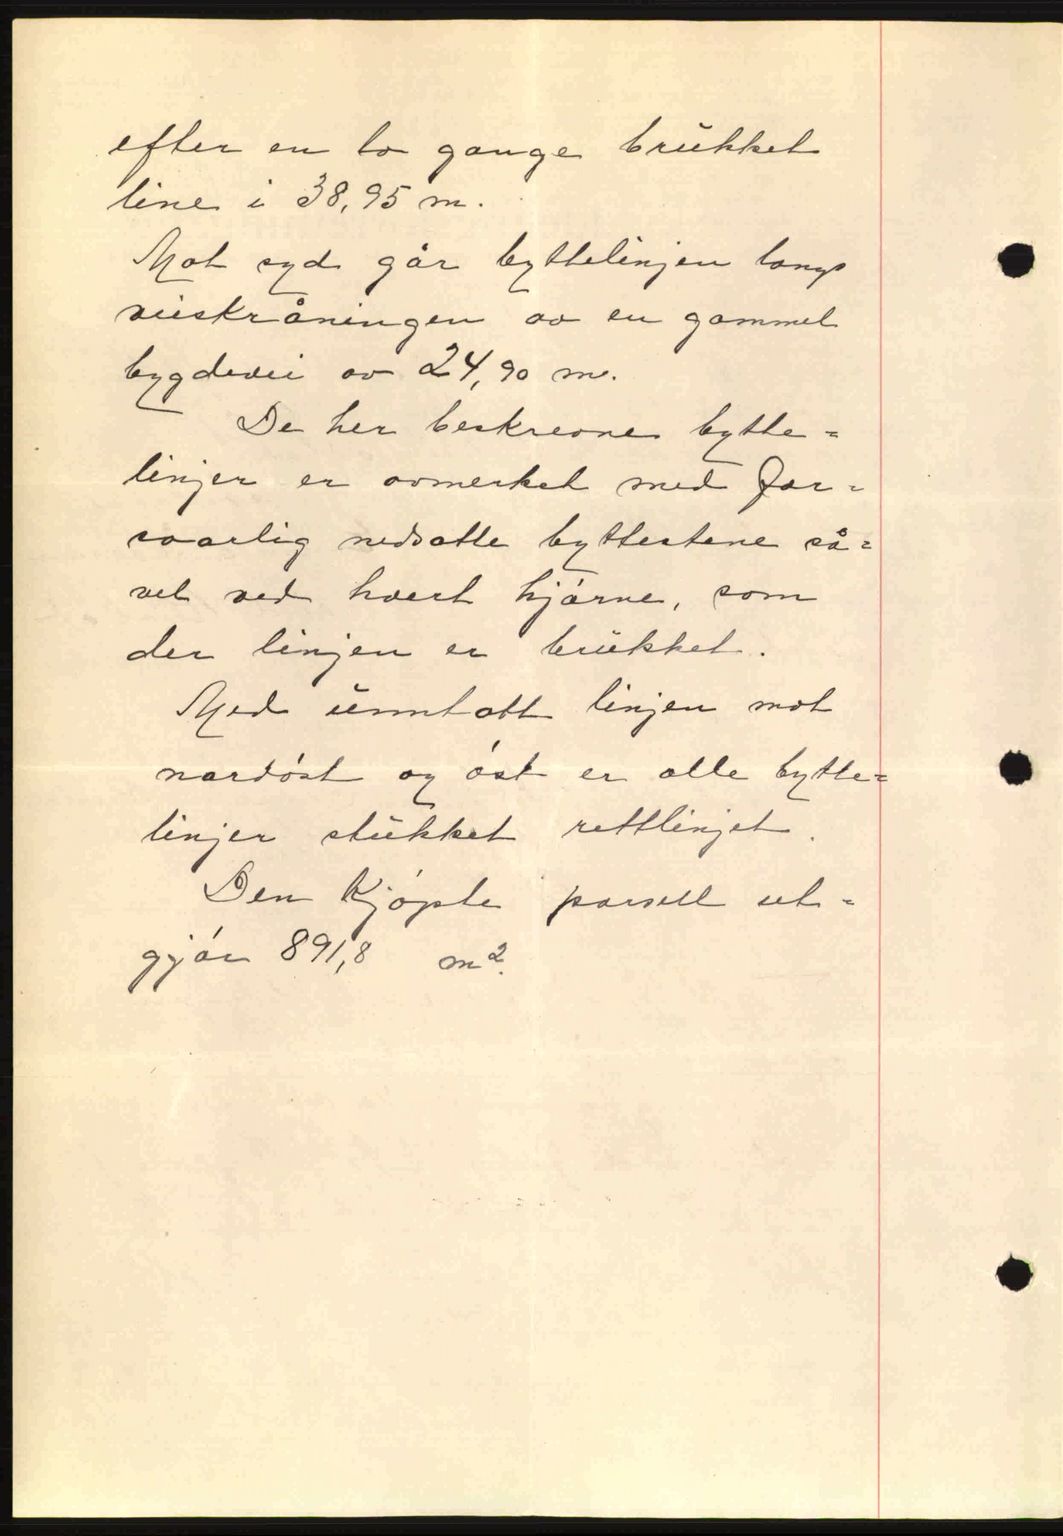 efter en to gange brukket
line i 38,95 m.
Mot syd går byttelinjen langs
veiskråningen av en gammel
bygdevei av 24,90 m.
De her beskrevne bytte=
linjer er avmerket med for=
svarlig nedsatte byttestene så=
vel ved hvert hjørne, som
der linjen er brukket.
Med unntatt linjen mot
nordøst og øst er alle bytte=
linjer stukket rettlinjet.
Den kjøpte parsell ut=
gjør 891,8 m².